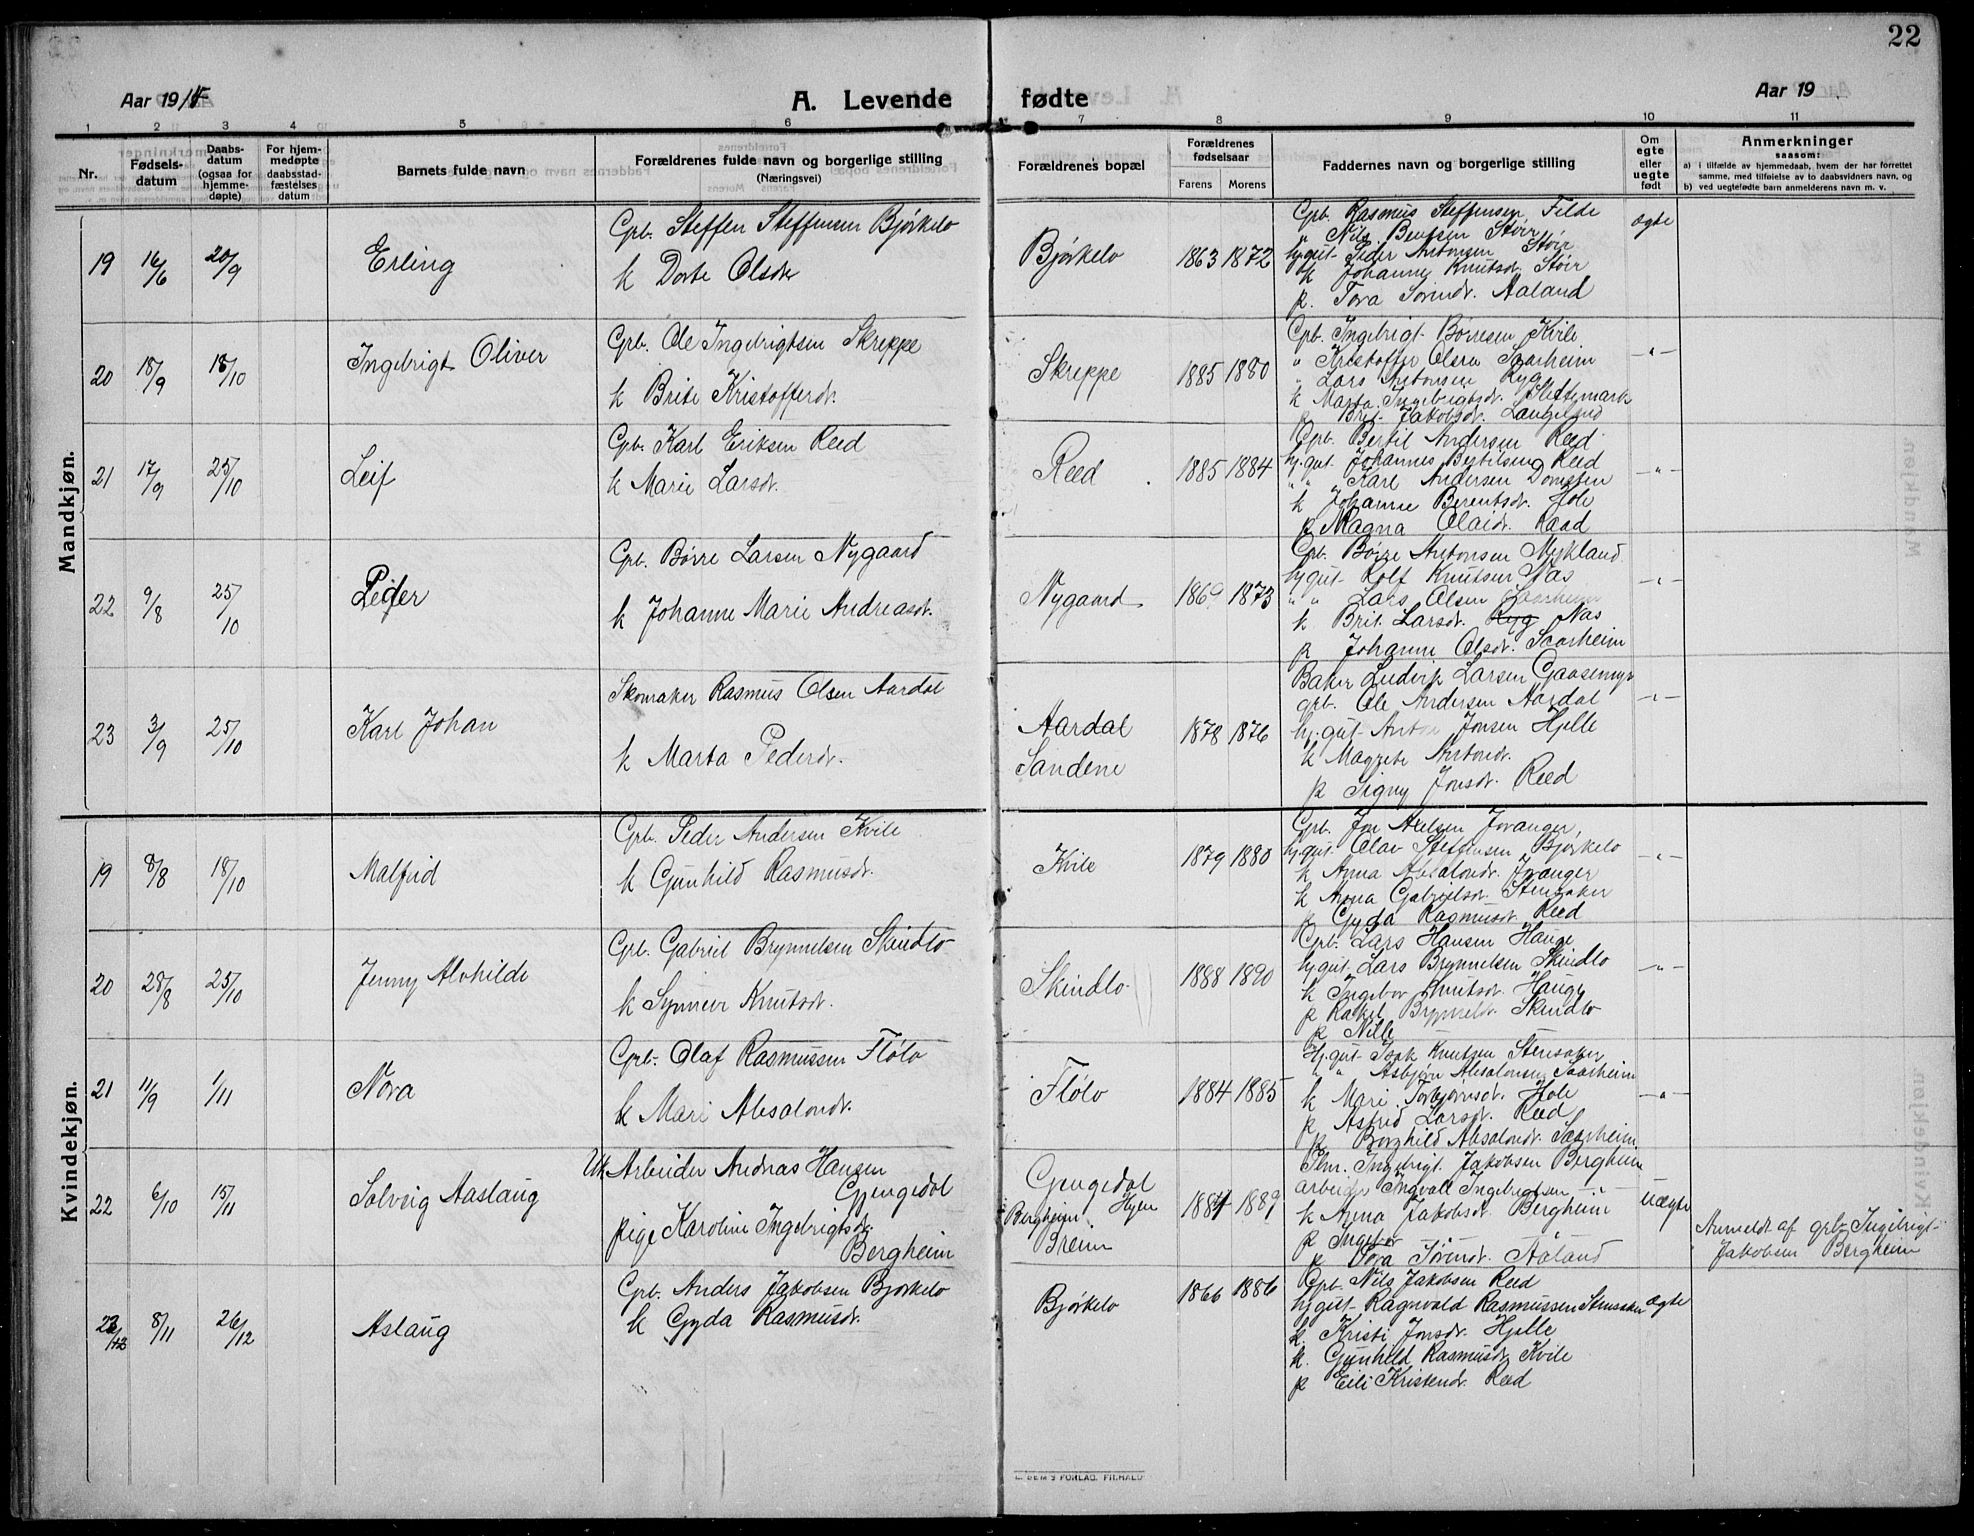 22
Aar 1914
A. Levende fødte
Aar 19
1 2 3 4 5 6 7 8 9 10 11
Nr.
Fødsels-
datum
Daabs-
datum
(ogsaa for
hjemme-
døpte)
For hjem-
medøpte
daabsstad-
fæstelses
datum
Barnets fulde navn
Forældrenes fulde navn og borgerlige stilling
(Næringsvei)
Forældrenes bopæl
Forældrenes
fødselsaar
Farens Morens
Faddernes navn og borgerlige stilling
Om
egte
eller
uegte
født
Anmerkninger
saasom:
a) i tilfælde av hjemmedaab, hvem der har forrettet
samme, med tilføielse av to daabsvidners navn, og
b) ved uegtefødte barn anmelderens navn m. v.
Mandkjøn.
19 16/6 20/9 Erling
Grb. Steffen Steffensen Bjørkelo
k Dorte Olsdr
Bjørkelo 1863 1872
Grb. Rasmus Steffensen Felde
" Nils Bentsen Støir
hj.gut Peder Antonsen Støir
k Johanne Knutsdr. Støir
p. Tora Sørindr. Aaland
ægte
20 18/9 18/10 Ingebrigt Oliver
Grb. Ole Ingebrigtsen Skreppe
k Brite Kristofferdr.
Skreppe 1885 1880
Grb. Ingebrigt Børresen Kvile
" Kristoffer Olsen Saarheim
" Lars Antonsen Ryg
k Marta Ingebrigtsdr. Slettemark
p Brit Jakobsdr. Langeland
-"-
21 17/9 25/10 Leif
Grb. Karl Eriksen Reed
k Marie Larsdr.
Reed 1885 1884
Grb. Bertil Andersen Reed
hj.gut Johannes Bertilsen Reed
" " Karl Andersen Domsten
k Johanne Berentsdr. Hole
p Magna Olaidr. Raad
-"-
22 9/8 25/10 Peder
Grb. Børre Larsen Nygaard
k Johanne Marie Andreasdr.
Nygaard 1869 1873
Grb. Børre Antonsen Mykland
hj.gut Rolf Knutsen Nas
" " Lars Olsen Saarheim
k Brit Larsdr. Ryg Nas
p Johanne Olsdr. Saarheim
-"-
23 3/9 25/10 Karl Johan
Skomaker Rasmus Olsen Aardal
k Marta Pedersdr.
Aardal
Sandene
1878 1876
Baker Ludvik Larsen Gaasemyr
grb. Ole Andersen Aardal
hj.gut Anton Jonsen Hjelle
k Magrete Antondr.
p Signy Jonsdr. Reed
-"-
Kvindekjøn.
19 8/8 18/10 Malfrid
Grb. Peder Andersen Kvile
k Gunhild Rasmusdr.
Kvile 1879 1880
Grb. Jon Nelsen Joranger,
hj.gut Olav Steffensen Bjørkelo
k Anna Absalondr. Joranger
k Anna Gabrielsdr. Stensaker
p Gyda Rasmusdr. Reed
-"-
20 28/8 25/10 Jenny Alvhilde
Grb. Gabriel Brynnelsen Skindlo
k Synneve Knutsdr.
Skindlo 1888 1890
Grb. Lars Hansen Hauge
hj.gut Lars Brynnelsen Skindlo
k Ingebor Knutsdr. Hauge
p Rakel Brynneldr. Skindlo
p Nille
-"-
21 11/9 1/11 Nora
Grb. Olaf Rasmussen Flølo
k Mari Absalondr.
Flølo 1884 1885
Hj.gut Isak Knutsen Stensaker
" " Asbjørn Absalonsen Saarheim
k Mari Torbjørnsdr. Hole
p Astrid Larsdr. Reed
p Borghild Absalondr. Saarheim
-"-
22 6/10 15/11 Solveig Aaslaug
Uk Arbeider Andreas Hansen
Gjengedal
pige Karoline Ingebrigtsdr.
Bergheim
Gjengedal
Bergheim Hyen
Breim
1884 1889
Plm. Ingebrigt Jakobsen Bergheim
arbeider Ingvall Ingebrigtsen "
k Anna Jakobsdr. Bergheim
p Ingebor
p Tora Sørindr. Aaland
uægte
Anmeldt af grb. Ingebrigt
Jakobsen Bergheim
23 8/11 26/12 Aslaug
Grb. Anders Jakobsen Bjørkelo
k Gyda Rasmusdr.
Bjørkelo 1866 1886
Grb. Nils Jakobsen Reed
hj.gut Ragnvald Rasmussen Stensaker
k. Kristi Jonsdr. Hjelle
k. Gunhild Rasmusdr. Kvile
p Eili Kristendr. Reed
ægte